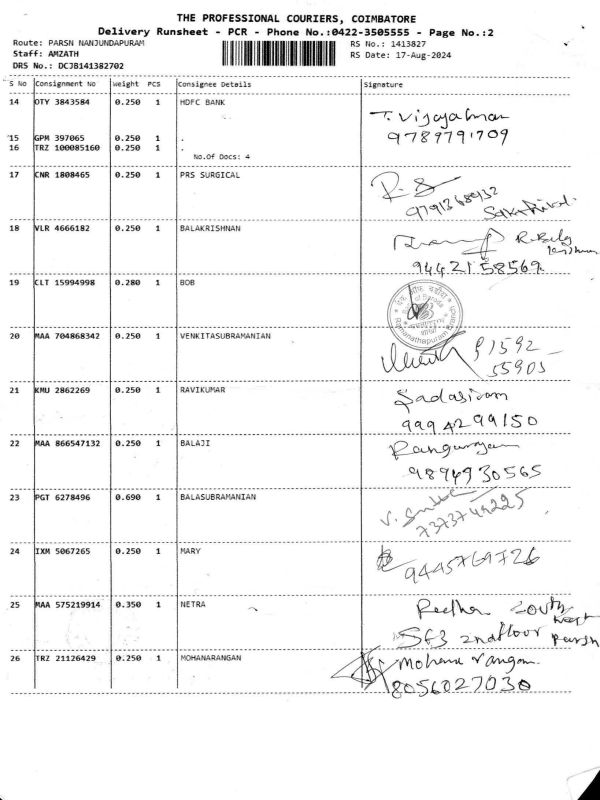 THE PROFESSIONAL COURIERS, COIMBATORE
Delivery Runsheet - PCR - Phone No.:0422-3505555 - Page No.:2
Route: PARSN NANJUNDAPURAM RS No.: 1413827
Staff: AMZATH RS Date: 17-Aug-2024
DRS No.: DCJB141382702
S No Consignment No Weight PCS Consignee Details Signature
14 OTY 3843584 0.250 1 HDFC BANK
T. Vijayalman
9789791709
15 GPM 397065 0.250 1 .
16 TRZ 100085160 0.250 1 .
No.Of Docs: 4
17 CNR 1808465 0.250 1 PRS SURGICAL
9791368932
18 VLR 4666182 0.250 1 BALAKRISHNAN
9442158569
19 CLT 15994998 0.280 1 BOB
Ramanathapuram Branch
20 MAA 704868342 0.250 1 VENKITASUBRAMANIAN
91592
55905
21 KMU 2862269 0.250 1 RAVIKUMAR
Sadasivam
9994299150
22 MAA 866547132 0.250 1 BALAJI
9894930565
23 PGT 6278496 0.690 1 BALASUBRAMANIAN
7373749225
24 IXM 5067265 0.250 1 MARY
9445769726
25 MAA 575219914 0.350 1 NETRA
South
West
SG3 2nd floor Parsn
26 TRZ 21126429 0.250 1 MOHANARANGAN
Mohana rangan.
8056027030